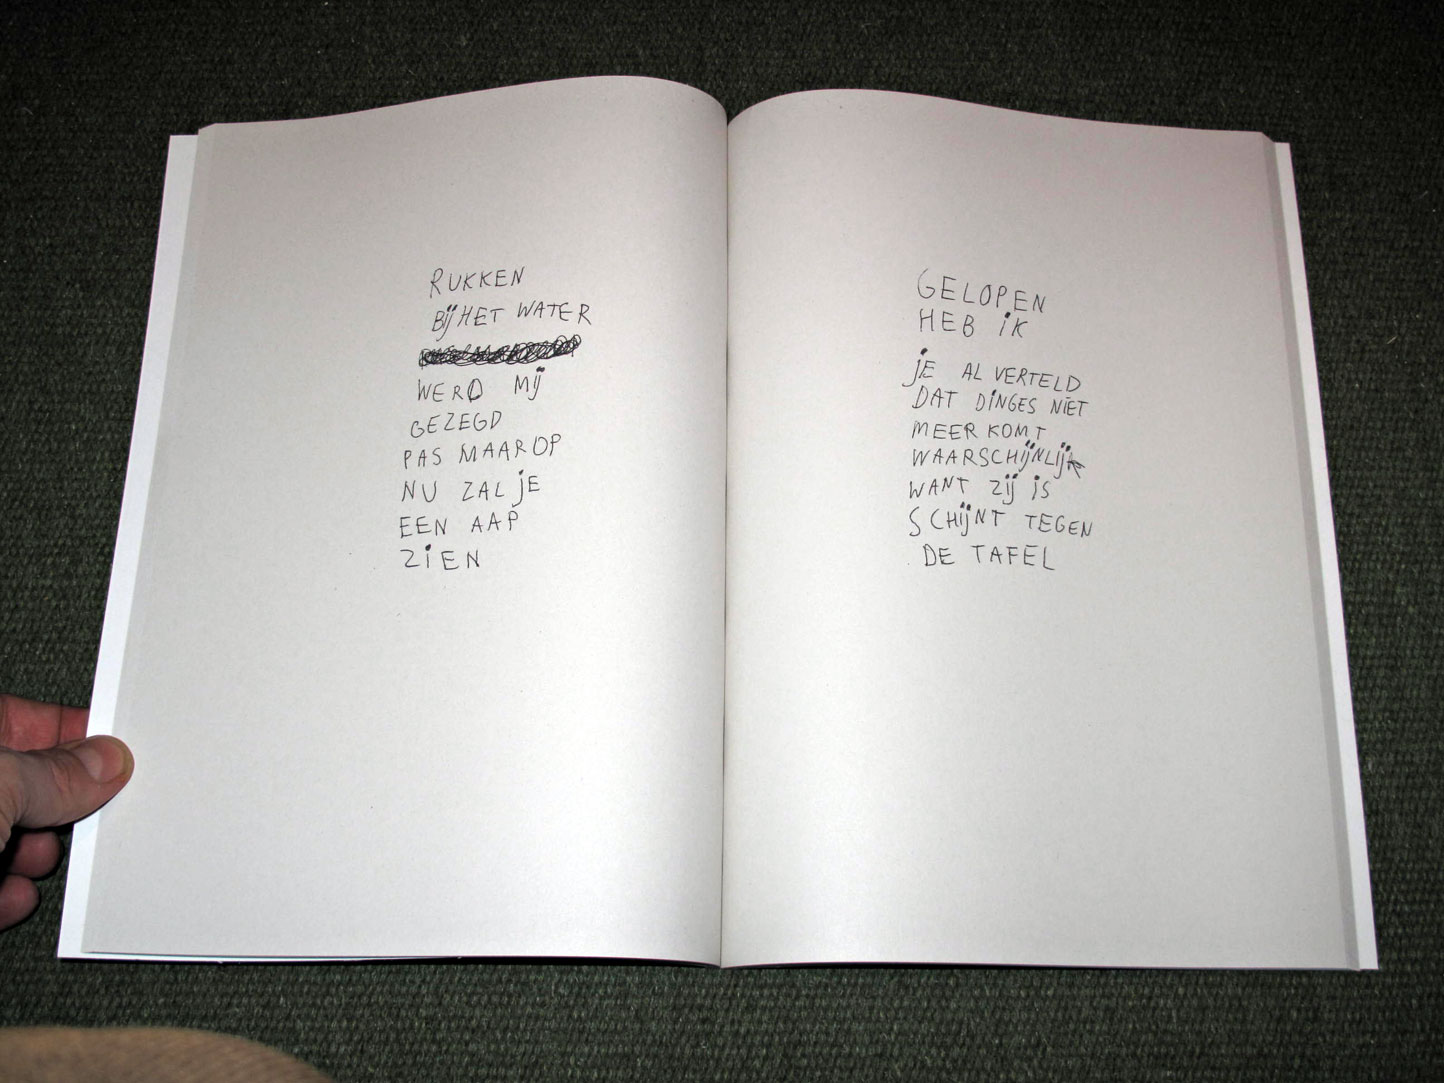 RUKKEN
BIJ HET WATER
WERD MIJ
GEZEGD
PAS MAAR OP
NU ZAL JE
EEN AAP
ZIEN
GELOPEN
HEB iK
jE AL VERTELD
DAT DiNGES NiET
MEER KOMT
WAARSCHijNLijK
WANT Zij iS
SCHijNT TEGEN
DE TAFEL